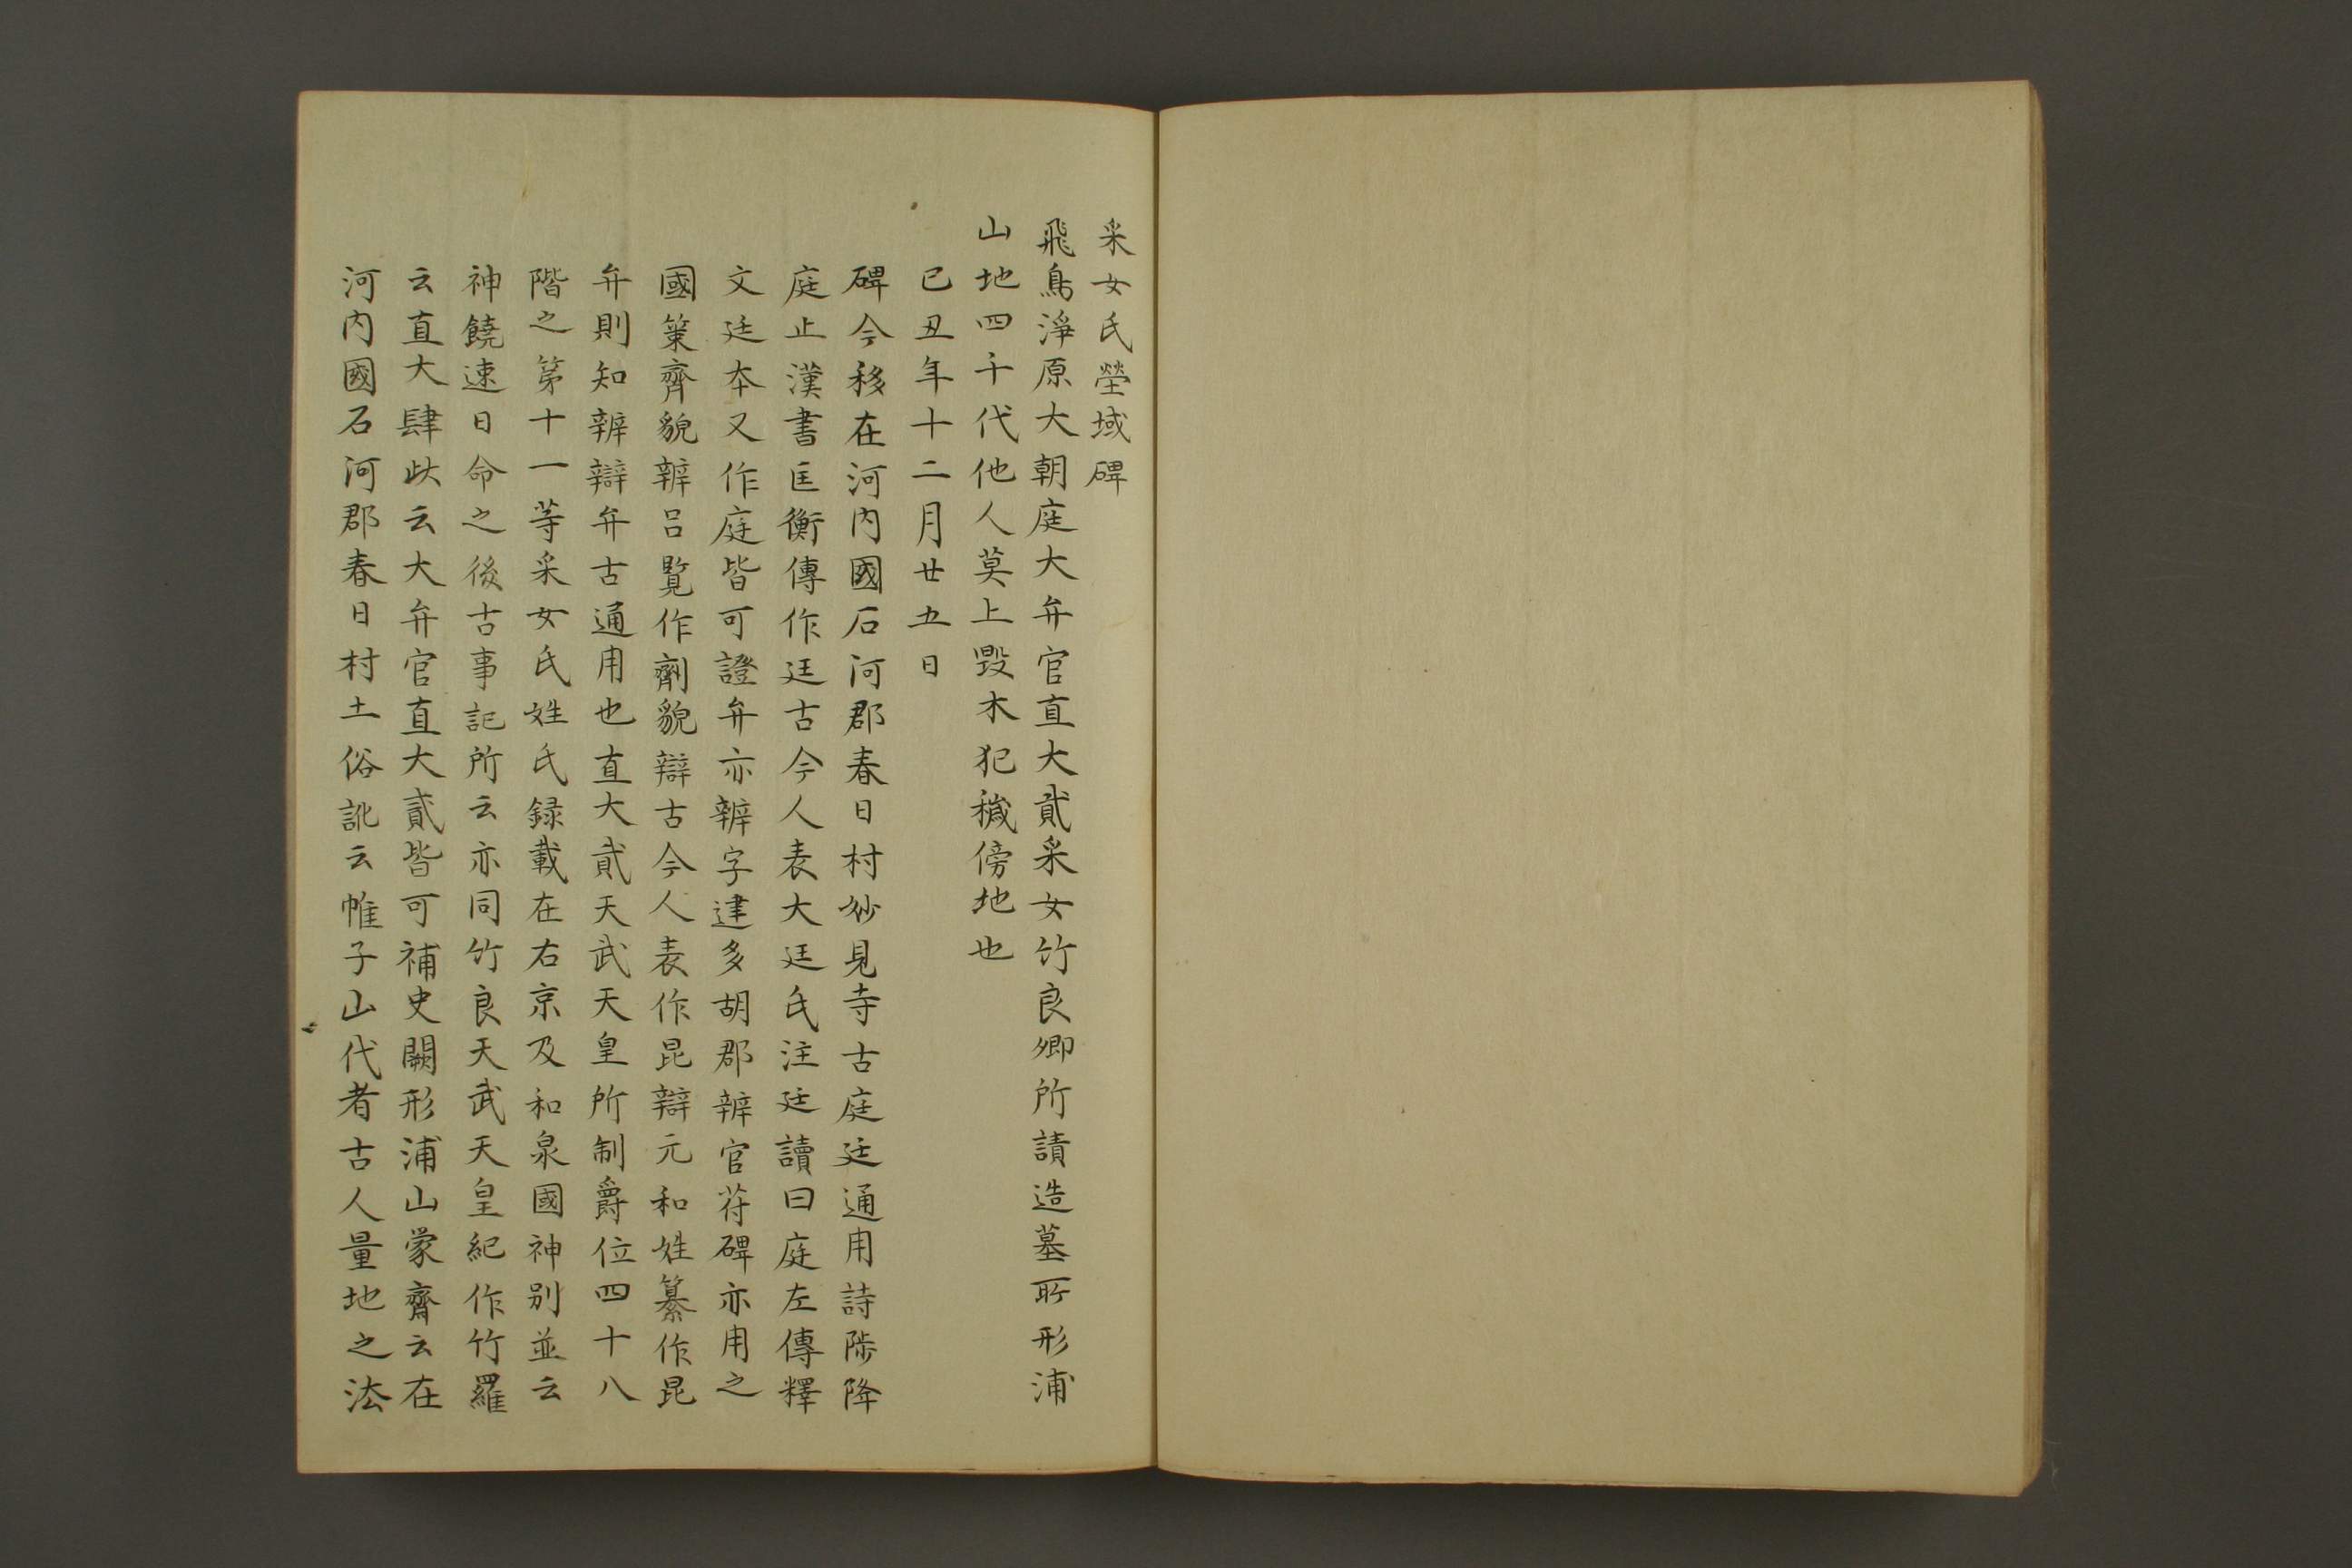 采女氏塋域碑
飛鳥淨原大朝庭大弁官直大貳采女竹良卿所請造墓所形浦
山地四千代他人莫上毀木犯穢傍地也
己丑年十二月廿五日
碑今移在河内國石河郡春日村妙見寺古庭廷通用詩陟降
庭止漢書匡衡傳作廷古今人表大廷氏注廷讀曰庭左傳釋
文廷本又作庭皆可證弁亦辨字建多胡郡辨官苻碑亦用之
國策齊貌辨呂覧作劑貌辯古今人表作昆辯元和姓纂作昆
弁則知辨辯弁古通用也直大貳天武天皇所制爵位四十八
階之第十一等采女氏姓氏録載在右京及和泉國神別並云
神饒速日命之後古事記所云亦同竹良天武天皇紀作竹羅
云直大肆此云大弁官直大貳皆可補史闕形浦山蒙齋云在
河内國石河郡春日村土俗訛云帷子山代者古人量地之法